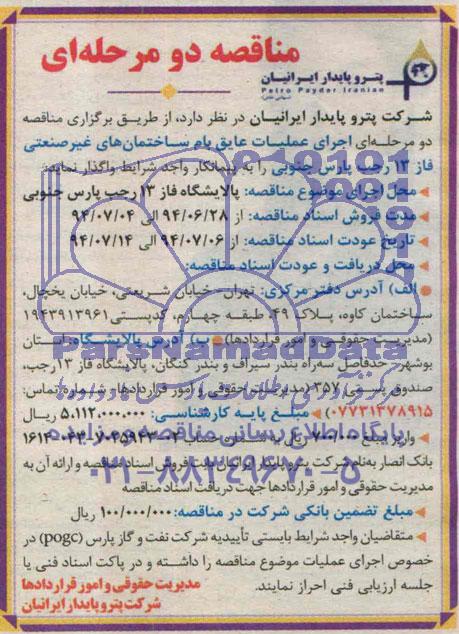 مناقصه دو مرحله‌ای
پترو پایدار ایرانیان
Petro Paydar Iranian
شرکت پترو پایدار ایرانیان در نظر دارد، از طریق برگزاری مناقصه
دو مرحله‌ای اجرای عملیات عایق بام ساختمان‌های غیرصنعتی
فاز ۱۳ رجب پارس جنوبی را به پیمانکار واجد شرایط واگذار نماید:
محل اجرای موضوع مناقصه: پالایشگاه فاز ۱۳ رجب پارس جنوبی
مدت فروش اسناد مناقصه: از ۹۴/۰۶/۲۸ الی ۹۴/۰۷/۰۴
تاریخ عودت اسناد مناقصه: از ۹۴/۰۷/۰۶ الی ۹۴/۰۷/۱۴
محل دریافت و عودت اسناد مناقصه:
الف) آدرس دفتر مرکزی: تهران- خیابان شریعتی، خیابان یخچال،
ساختمان کاوه، پلاک ۴۹، طبقه چهارم، کدپستی ۱۹۴۳۹۱۳۹۶۱
(مدیریت حقوقی و امور قراردادها) ب) آدرس پالایشگاه: استان
بوشهر، حدفاصل سه‌راه بندر سیراف و بندر کنگان، پالایشگاه فاز ۱۳ رجب،
صندوق پستی ۳۵۷ (مدیریت حقوقی و امور قراردادها و شماره تماس:
۰۷۷۳۱۳۷۸۹۱۵) مبلغ پایه کارشناسی: ۵.۱۱۲.۰۰۰.۰۰۰ ریال
واریز مبلغ ۷۰۰/۰۰۰ ریال به حساب
بانک انصار به‌نام شرکت پترو پایدار ایرانیان بابت فروش اسناد مناقصه و ارائه آن به
مدیریت حقوقی و امور قراردادها جهت دریافت اسناد مناقصه
مبلغ تضمین بانکی شرکت در مناقصه: ۱۰۰/۰۰۰/۰۰۰ ریال
متقاضیان واجد شرایط بایستی تأییدیه شرکت نفت و گاز پارس (pogc) در
خصوص اجرای عملیات موضوع مناقصه را داشته و در پاکت اسناد فنی یا
جلسه ارزیابی فنی احراز نمایند.
مدیریت حقوقی و امور قراردادها
شرکت پترو پایدار ایرانیان
ParsNamadData
پایگاه اطلاع رسانی مناقصه و مزایده
۰۲۱-۸۸۳۴۹۶۷۰-۵